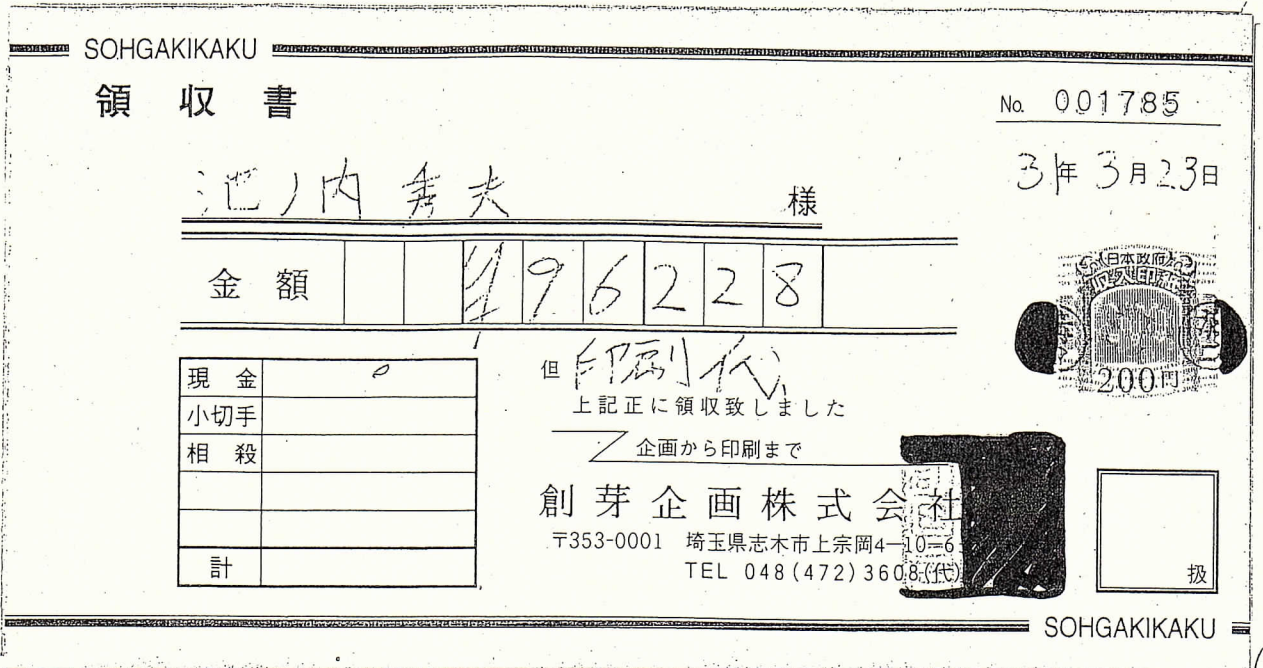 SOHGAKIKAKU
領収書
No. 001785
31年3月23日
池ノ内 秀夫 様
金額 ¥96228
現金
小切手
相殺
計
但 印刷代
上記正に領収致しました
企画から印刷まで
創芽企画株式会社
〒353-0001 埼玉県志木市上宗岡4-10-6
TEL 048(472)3608(代)
日本政府
収入印紙
200円
扱
SOHGAKIKAKU